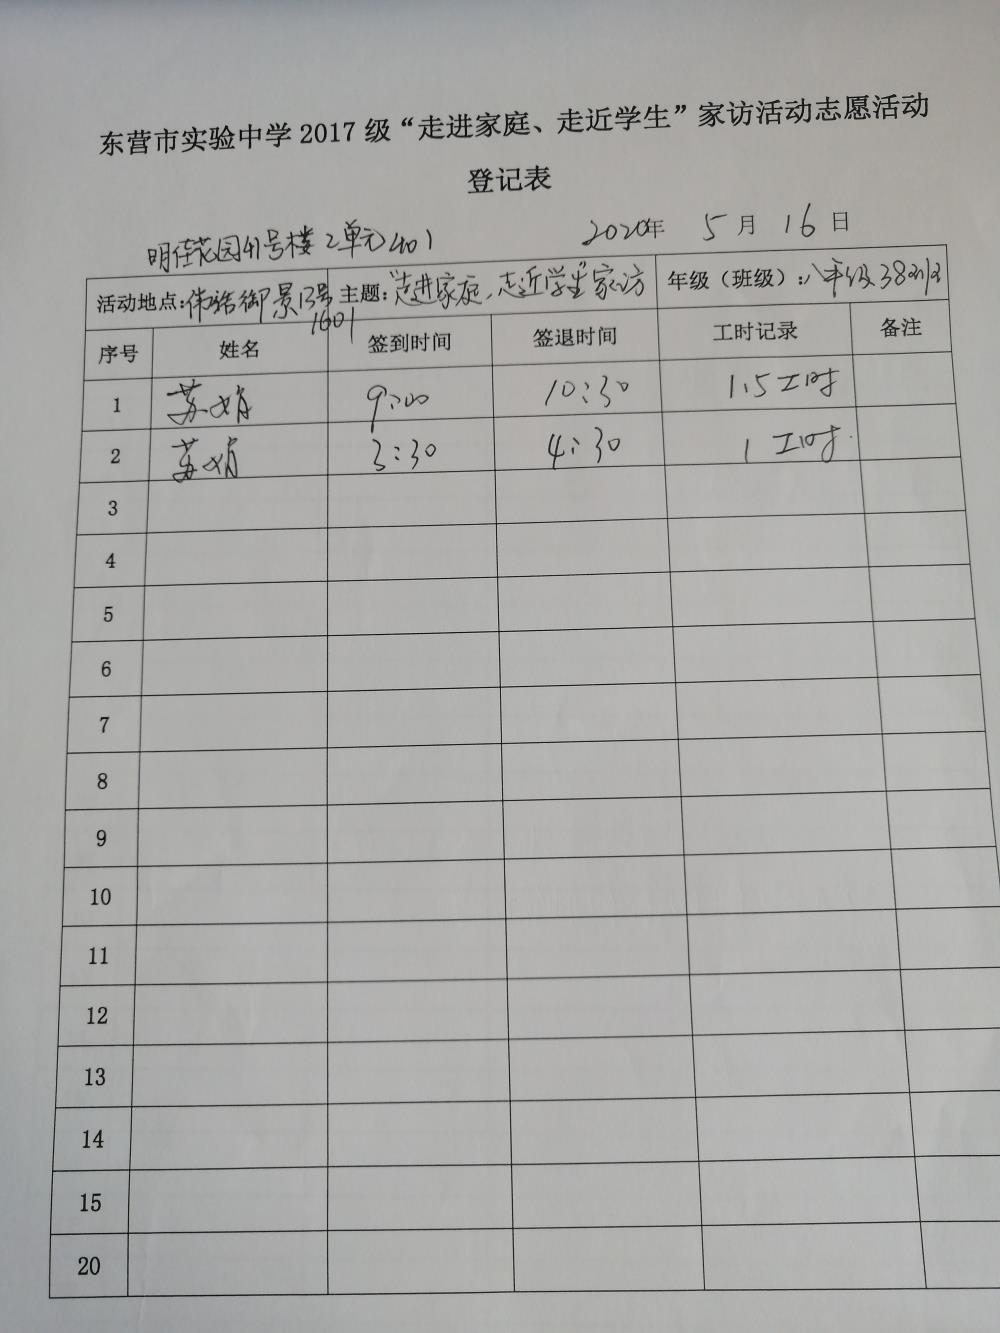 东营市实验中学 2017 级“走进家庭、走近学生”家访活动志愿活动
登记表
明佳花园41号楼2单元401 2020年 5 月 16 日
活动地点：伟浩御景13号1601 主题：“走进家庭、走近学生”家访 年级（班级）：八年级38班
序号 姓名 签到时间 签退时间 工时记录 备注
1 苏娟 9:00 10:30 1.5工时
2 苏娟 3:30 4:30 1工时
3
4
5
6
7
8
9
10
11
12
13
14
15
20